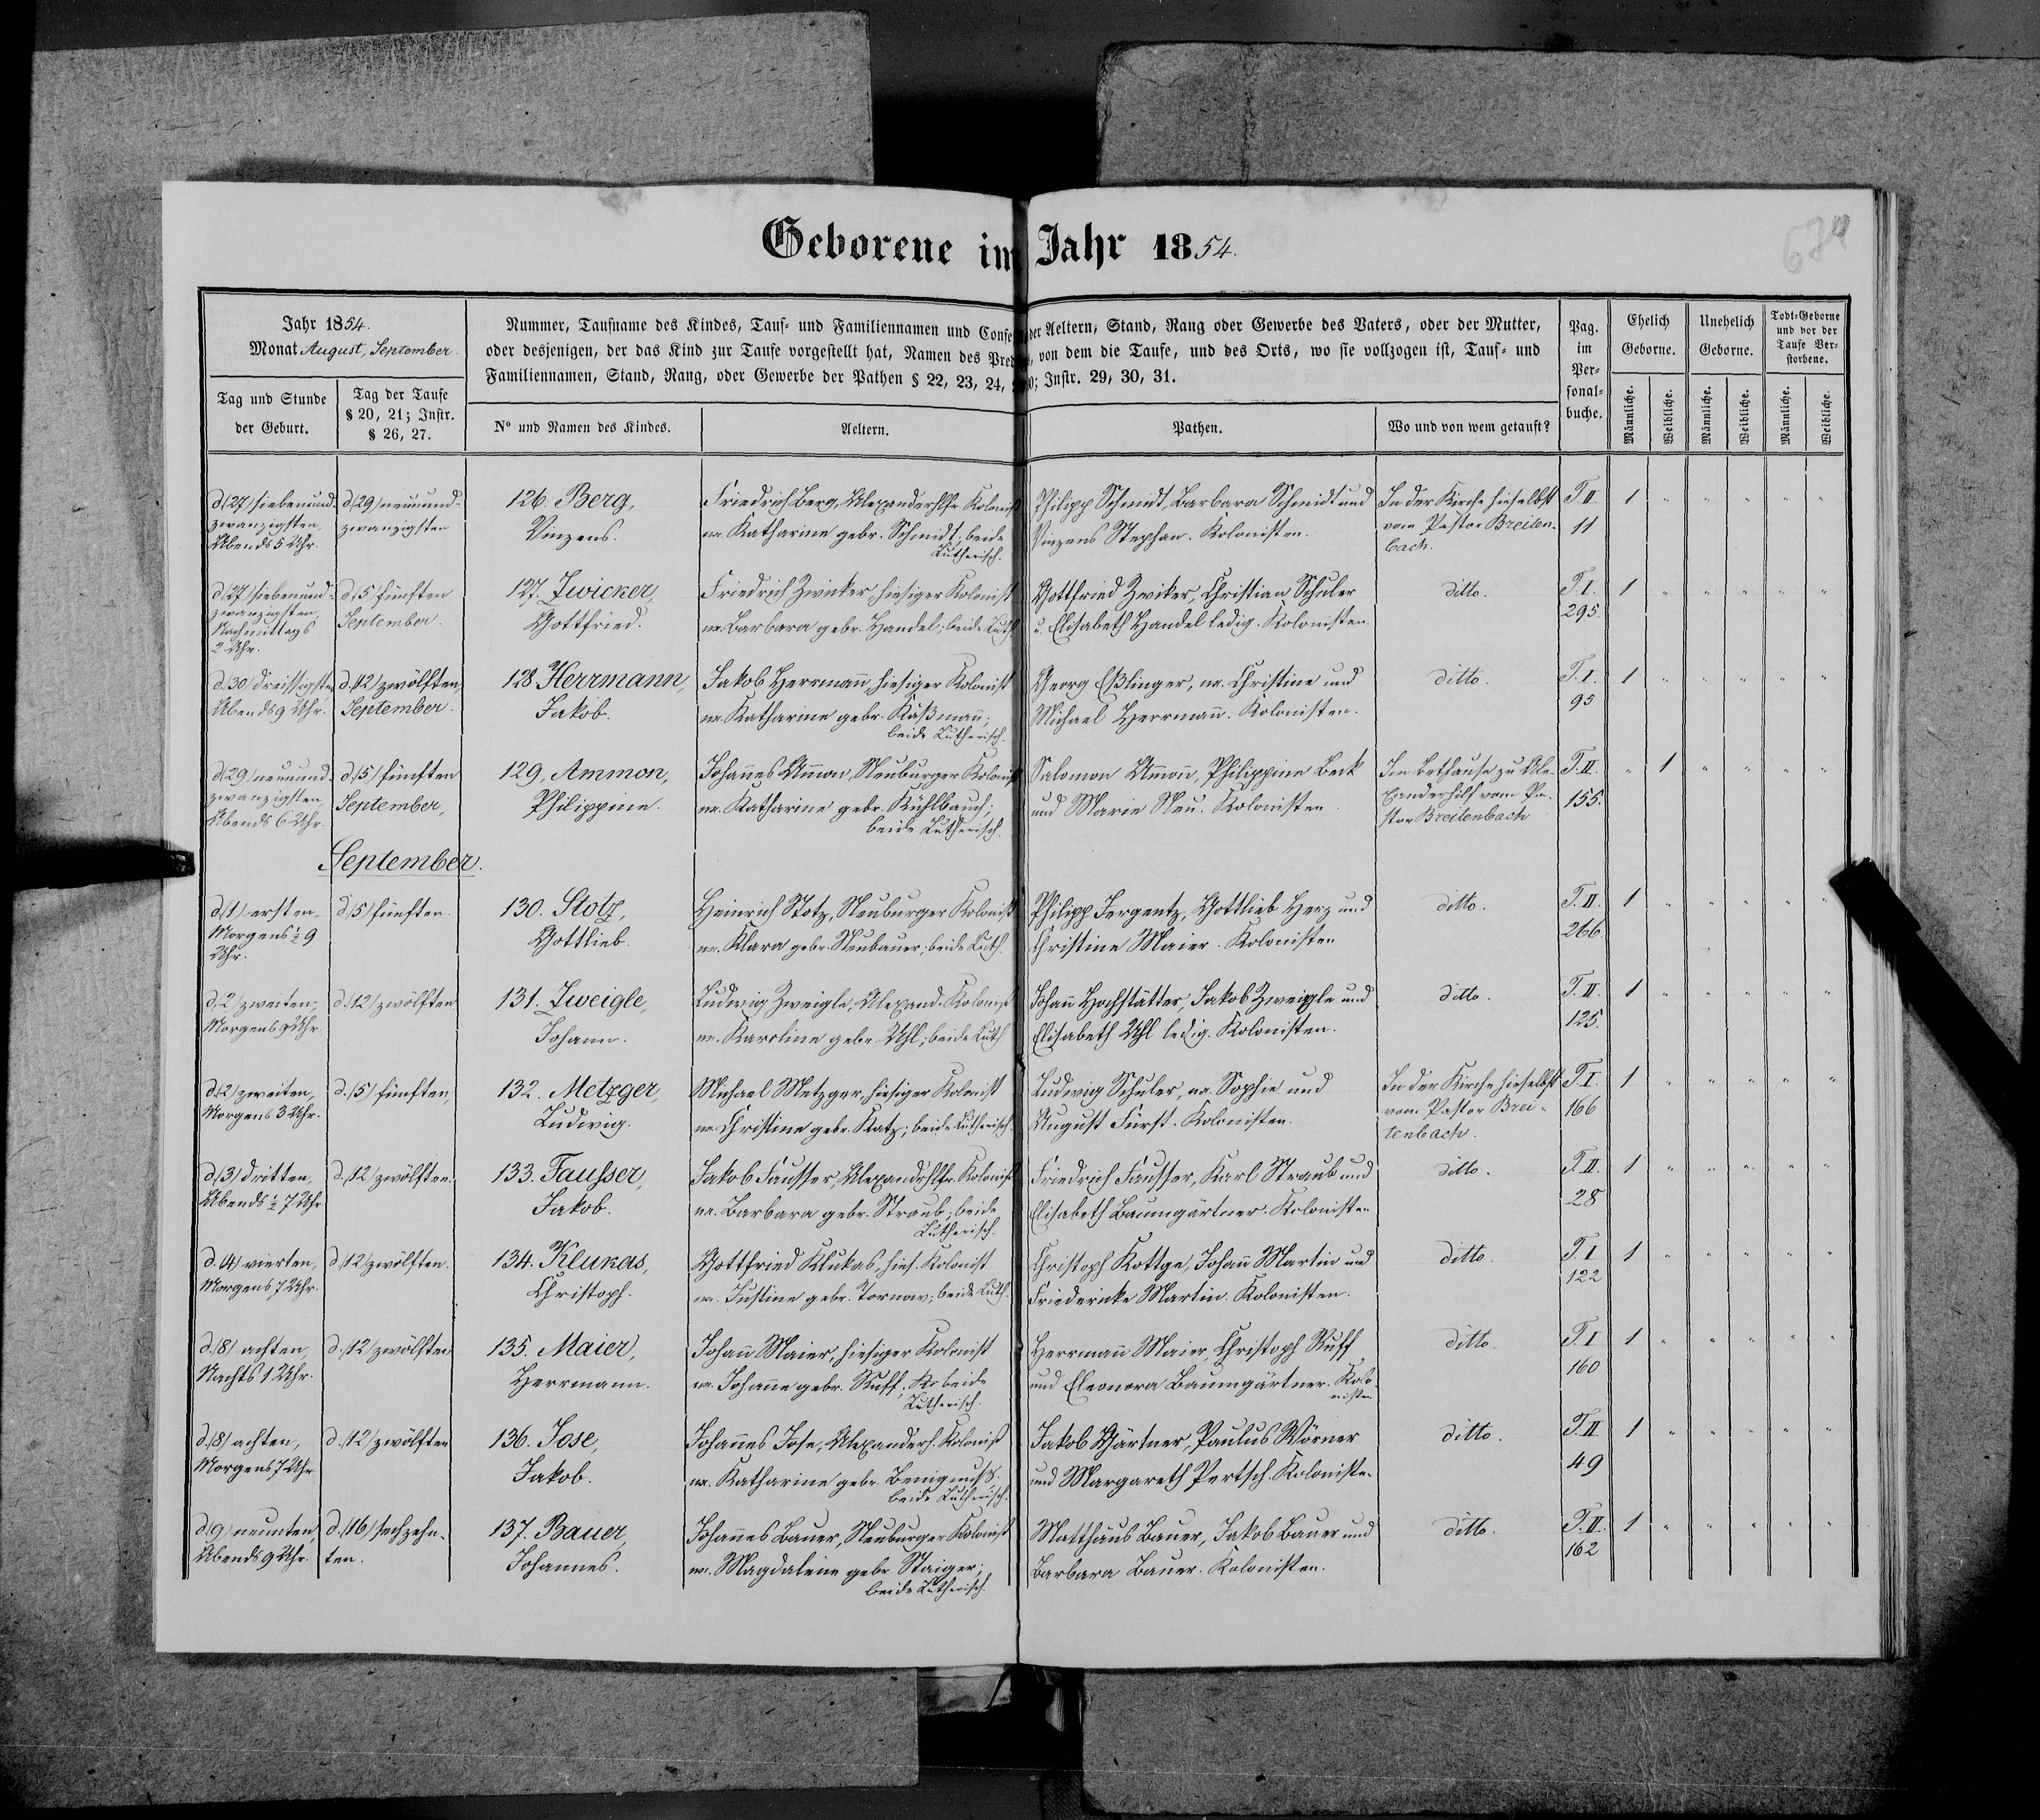 Geborene im Jahr 1854.
Jahr 1854.
Monat August, September.
Tag und Stunde
der Geburt.
Tag der Taufe
§ 20, 21; Instr.
§ 26, 27.
Nummer, Taufname des Kindes, Tauf- und Familiennamen und Confe der Aeltern, Stand, Rang oder Gewerbe des Vaters, oder der Mutter,
oder desjenigen, der das Kind zur Taufe vorgestellt hat, Namen des Pred, von dem die Taufe, und des Orts, wo sie vollzogen ist, Tauf- und
Familiennamen, Stand, Rang, oder Gewerbe der Pathen § 22, 23, 24, Instr. 29, 30, 31.
No und Namen des Kindes.
Aeltern.
Pathen.
Wo und von wem getauft?
Pag.
im
Per-
sonal-
buche.
Ehelich
Geborne.
Unehelich
Geborne.
Todt-Geborne
und vor der
Taufe Ver-
storbene.
Männliche. Weibliche. Männliche. Weibliche. Männliche. Weibliche.
d. (27) siebenund-
zwanzigsten,
Abends 5 Uhr.
d. (29) neunund-
zwanzigsten
126. Berg,
Vinzens.
Friedrich Berg, Alexanderhlfr Kolonist
ux. Katharine gebr. Schmidt; beide
Lutherisch.
Philipp Schmidt, Barbara Schmidt und
Vinzens Stephan. Kolonisten.
In der Kirche hieselbst
vom Pastor Breiten-
bach.
T. II.
11
1
d. (27) siebenund-
zwanzigsten,
Nachmittags
2 Uhr.
d. (5) fünften
September.
127. Zwicker,
Gottfried.
Friedrich Zwicker, hiesiger Kolonist
ux. Barbara gebr. Handel; beide Luth.
Gottfried Zwiker, Christian Schuler
u. Elisabeth Handel ledig. Kolonisten.
ditto.
T. I.
295.
1
d. (30) dreissigsten
Abends 9 Uhr.
d. (12) zwölften,
September.
128. Herrmann,
Jakob.
Jakob Herrmann, hiesiger Kolonist
ux. Katharine gebr. Käßmann;
beide Lutherisch.
Georg Eßlinger, ux. Christine und
Michael Herrmann. Kolonisten.
ditto.
T. I.
95
1
d. (29) neunund-
zwanzigsten,
Abends 6 Uhr.
d. (5) fünften
September,
129. Ammon,
Philippine.
Johannes Ammon, Neuburger Kolonist
ux. Katharine gebr. Kühlbauch;
beide Lutherisch.
Salomon Ammon, Philippine Beck
und Marie Neu. Kolonisten.
Im Bethause zu Ale-
xanderhilf vom Pa-
stor Breitenbach
T. II.
155.
1
September.
d. (1) ersten,
Morgens ½ 9
Uhr.
d. (5) fünften.
130. Stotz,
Gottlieb.
Heinrich Stotz, Neuburger Kolonist
ux. Klara gebr. Neubauer; beide Luth.
Philipp Jergentz, Gottlieb Herz und
Christine Maier. Kolonisten
ditto.
T. II.
266
1
d. (2) zweiten,
Morgens 9 Uhr.
d. (12) zwölften
131. Zweigle,
Johann.
Ludwig Zweigle, Alexand. Kolonist
ux. Karoline gebr. Uhl; beide Luth.
Johann Hochstätter, Jakob Zweigle und
Elisabeth Uhl ledig. Kolonisten.
ditto.
T. II.
125.
1
d. (2) zweiten,
Morgens 3 Uhr.
d. (5) fünften,
132. Metzger,
Ludwig.
Michael Metzger, hiesiger Kolonist
ux. Christine gebr. Katz; beide Lutherisch.
Ludwig Schuler, ux. Sophie und
August Fürst. Kolonisten.
In der Kirche hieselbst
vom Pastor Brei-
tenbach.
T. I.
166
1
d. (3) dritten,
Abends ½ 7 Uhr
d. (12) zwölften.
133. Fausser,
Jakob.
Jakob Fausser, Alexandrhlfr. Kolonist
ux. Barbara gebr. Straub; beide
Lutherisch.
Friedrich Fausser, Karl Straub und
Elisabeth Baumgärtner. Kolonisten
ditto.
T. II.
28
1
d. (4) vierten,
Morgens 7 Uhr.
d. (12) zwölften.
134. Klukas,
Christoph.
Gottfried Klukas, hies. Kolonist
ux. Justine gebr. Tornow; beide Luth.
Christoph Kottge, Johann Martin und
Friedericke Martin. Kolonisten.
ditto.
T. I
122
1
d. (8) achten,
Nachts 1 Uhr.
d. (12) zwölften
135. Maier,
Herrmann.
Johann Maier, hiesiger Kolonist
ux. Johanne gebr. Ruff; beide
Lutherisch.
Herrmann Maier, Christoph Ruff
und Eleonora Baumgärtner. Kolo-
nisten.
ditto.
T. I
160
1
d. (8) achten,
Morgens 7 Uhr
d. (12) zwölften
136. Jose,
Jakob.
Johannes Jose, Alexanderh. Kolonist
ux. Katharine gebr. Benignuß.
beide Lutherisch.
Jakob Gärtner, Paulus Wörner
und Margareth Pertsch. Koloniste.
ditto.
T. II
49
1
d. (9) neunten,
Abends 9 Uhr.
d. (16) sechzehn-
ten.
137. Bauer,
Johannes.
Johannes Bauer, Neuburger Kolonist
ux. Magdalene gebr. Staiger;
beide Lutherisch.
Matthäus Bauer, Jakob Bauer und
Barbara Bauer. Kolonisten.
ditto.
T. II.
162
1